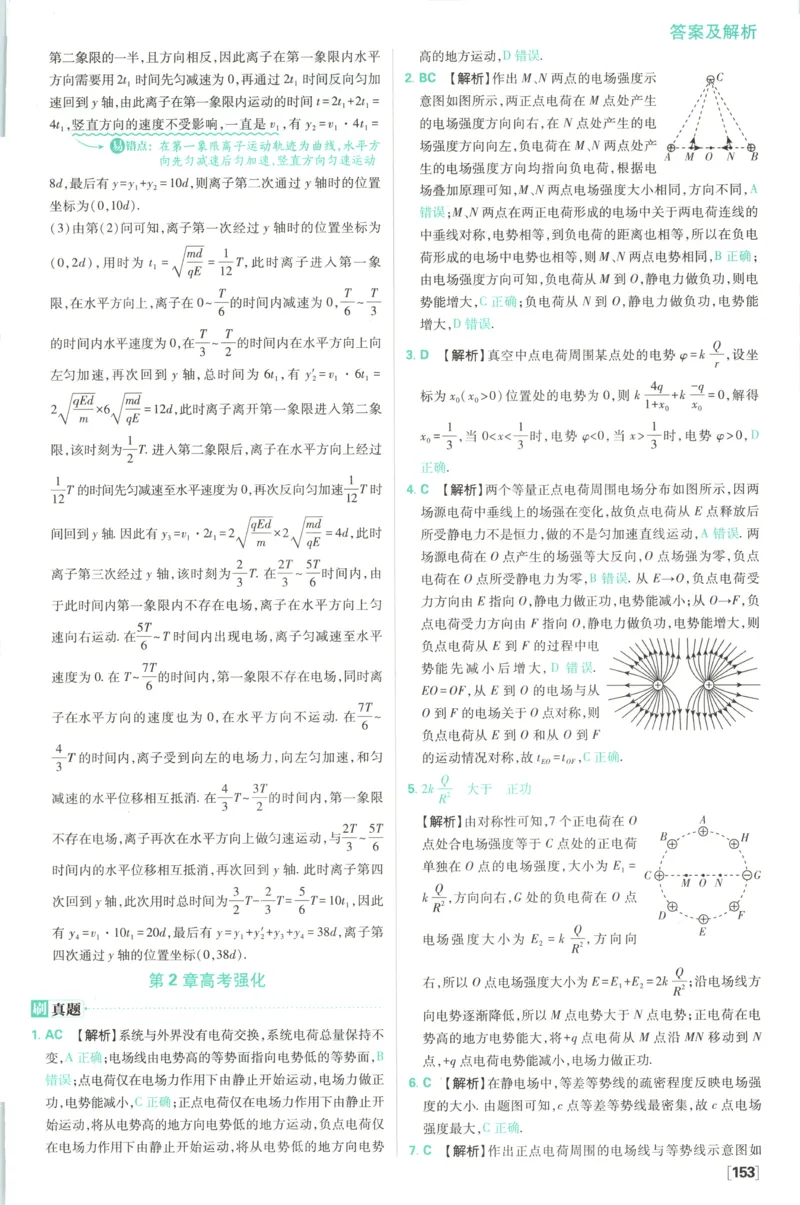 答案及解析
第二象限的一半,且方向相反,因此离子在第一象限内水平
方向需要用2t₁ 时间先匀减速为0,再通过2t₁ 时间反向匀加
速回到y轴,由此离子在第一象限内运动的时间t=2t₁+2t₁=
4t₁,竖直方向的速度不受影响,一直是v₁,有y₂=v₁·4t₁=
易错点:在第一象限离子运动轨迹为曲线,水平方
向先匀减速后匀加速,竖直方向匀速运动
8d,最后有y=y₁+y₂=10d,则离子第二次通过y轴时的位置
坐标为(0,10d).
(3)由第(2)问可知,离子第一次经过y轴时的位置坐标为
(0,2d),用时为 t₁=√(md/qE)=1/12 T,此时离子进入第一象
限,在水平方向上,离子在0~T/6的时间内减速为0,T/6~T/3
的时间内水平速度为0,在T/3~T/2的时间内在水平方向上向
左匀加速,再次回到y轴,总时间为6t₁,有y′₂=v₁·6t₁=
2√(qEd/m)×6√(md/qE)=12d,此时离子离开第一象限进入第二象
限,该时刻为1/2 T.进入第二象限后,离子在水平方向上经过
1/12 T的时间先匀减速至水平速度为0,再次反向匀加速1/12 T时
间回到y轴.因此有y₃=v₁·2t₁=2√(qEd/m)×2√(md/qE)=4d,此时
离子第三次经过y轴,该时刻为2/3 T.在2T/3~5T/6时间内,由
于此时间内第一象限内不存在电场,离子在水平方向上匀
速向右运动.在5T/6~T时间内出现电场,离子匀减速至水平
速度为0.在T~7T/6的时间内,第一象限不存在电场,同时离
子在水平方向的速度也为0,在水平方向不运动.在7T/6~
4/3 T的时间内,离子受到向左的电场力,向左匀加速,和匀
减速的水平位移相互抵消.在4/3 T~3T/2的时间内,第一象限
不存在电场,离子再次在水平方向上做匀速运动,与2T/3~5T/6
时间内的水平位移相互抵消,再次回到y轴.此时离子第四
次回到y轴,此次用时总时间为3/2 T-2/3 T=5/6 T=10t₁,因此
有y₄=v₁·10t₁=20d,最后有y=y₁+y′₂+y₃+y₄=38d,离子第
四次通过y轴的位置坐标(0,38d).
第2章高考强化
刷真题
1. AC 【解析】系统与外界没有电荷交换,系统电荷总量保持不
变,A正确;电场线由电势高的等势面指向电势低的等势面,B
错误;点电荷仅在电场力作用下由静止开始运动,电场力做正
功,电势能减小,C正确;正点电荷仅在电场力作用下由静止开
始运动,将从电势高的地方向电势低的地方运动,负点电荷仅
在电场力作用下由静止开始运动,将从电势低的地方向电势
高的地方运动,D错误.
2. BC 【解析】作出M、N两点的电场强度示
意图如图所示,两正点电荷在M点处产生
的电场强度方向向右,在N点处产生的电
场强度方向向左,负电荷在M、N两点处产
生的电场强度方向均指向负电荷,根据电
场叠加原理可知,M、N两点电场强度大小相同,方向不同,A
错误;M、N两点在两正电荷形成的电场中关于两电荷连线的
中垂线对称,电势相等,到负电荷的距离也相等,所以在负电
荷形成的电场中电势也相等,则M、N两点电势相同,B正确;
由电场强度方向可知,负电荷从M到O,静电力做负功,则电
势能增大,C正确;负电荷从N到O,静电力做负功,电势能
增大,D错误.
C
A M O N B
3. D 【解析】真空中点电荷周围某点处的电势φ=k Q/r,设坐
标为x₀(x₀>0)位置处的电势为0,则k 4q/(1+x₀)+k -q/x₀=0,解得
x₀=1/3,当0<x<1/3时,电势φ<0,当x>1/3时,电势φ>0,D
正确.
4. C 【解析】两个等量正点电荷周围电场分布如图所示,因两
场源电荷中垂线上的场强在变化,故负点电荷从E点释放后
所受静电力不是恒力,做的不是匀加速直线运动,A错误.两
场源电荷在O点产生的场强等大反向,O点场强为零,负点
电荷在O点所受静电力为零,B错误.从E→O,负点电荷受
力方向由E指向O,静电力做正功,电势能减小;从O→F,负
点电荷受力方向由F指向O,静电力做负功,电势能增大,则
负点电荷从E到F的过程中电
势能先减小后增大,D错误.
EO=OF,从E到O的电场与从
O到F的电场关于O点对称,则
负点电荷从E到O和从O到F
的运动情况对称,故t_EO=t_OF,C正确.
5. 2k Q/R² 大于 正功
【解析】由对称性可知,7个正电荷在O
点处合电场强度等于C点处的正电荷
单独在O点的电场强度,大小为E₁=
k Q/R²,方向向右,G处的负电荷在O点
电场强度大小为E₂=k Q/R²,方向向
右,所以O点电场强度大小为E=E₁+E₂=2k Q/R²;沿电场线方
向电势逐渐降低,所以M点电势大于N点电势;正电荷在电
势高的地方电势能大,将+q点电荷从M点沿MN移动到N
点,+q点电荷电势能减小,电场力做正功.
A
B H
C M O N G
D F
E
6. C 【解析】在静电场中,等差等势线的疏密程度反映电场强
度的大小.由题图可知,c点等差等势线最密集,故c点电场
强度最大,C正确.
7. C 【解析】作出正点电荷周围的电场线与等势线示意图如
[153]